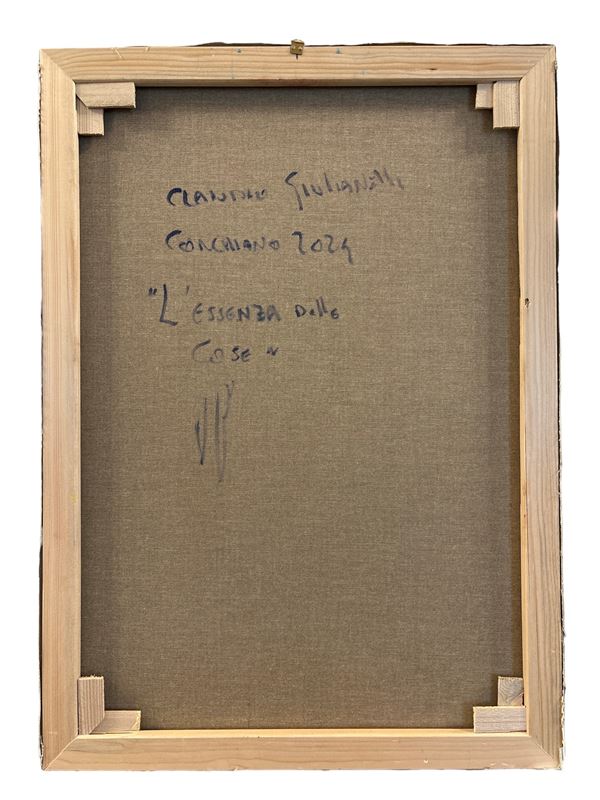 CLAUDIO GIULIANELLI
CORCHIANO 2024
"L'ESSENZA DellE
COSE"